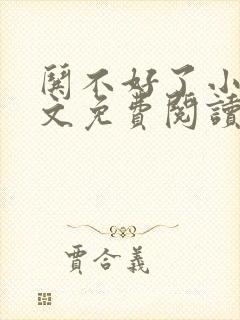 關不好了小
文免費閱讀
賈合義